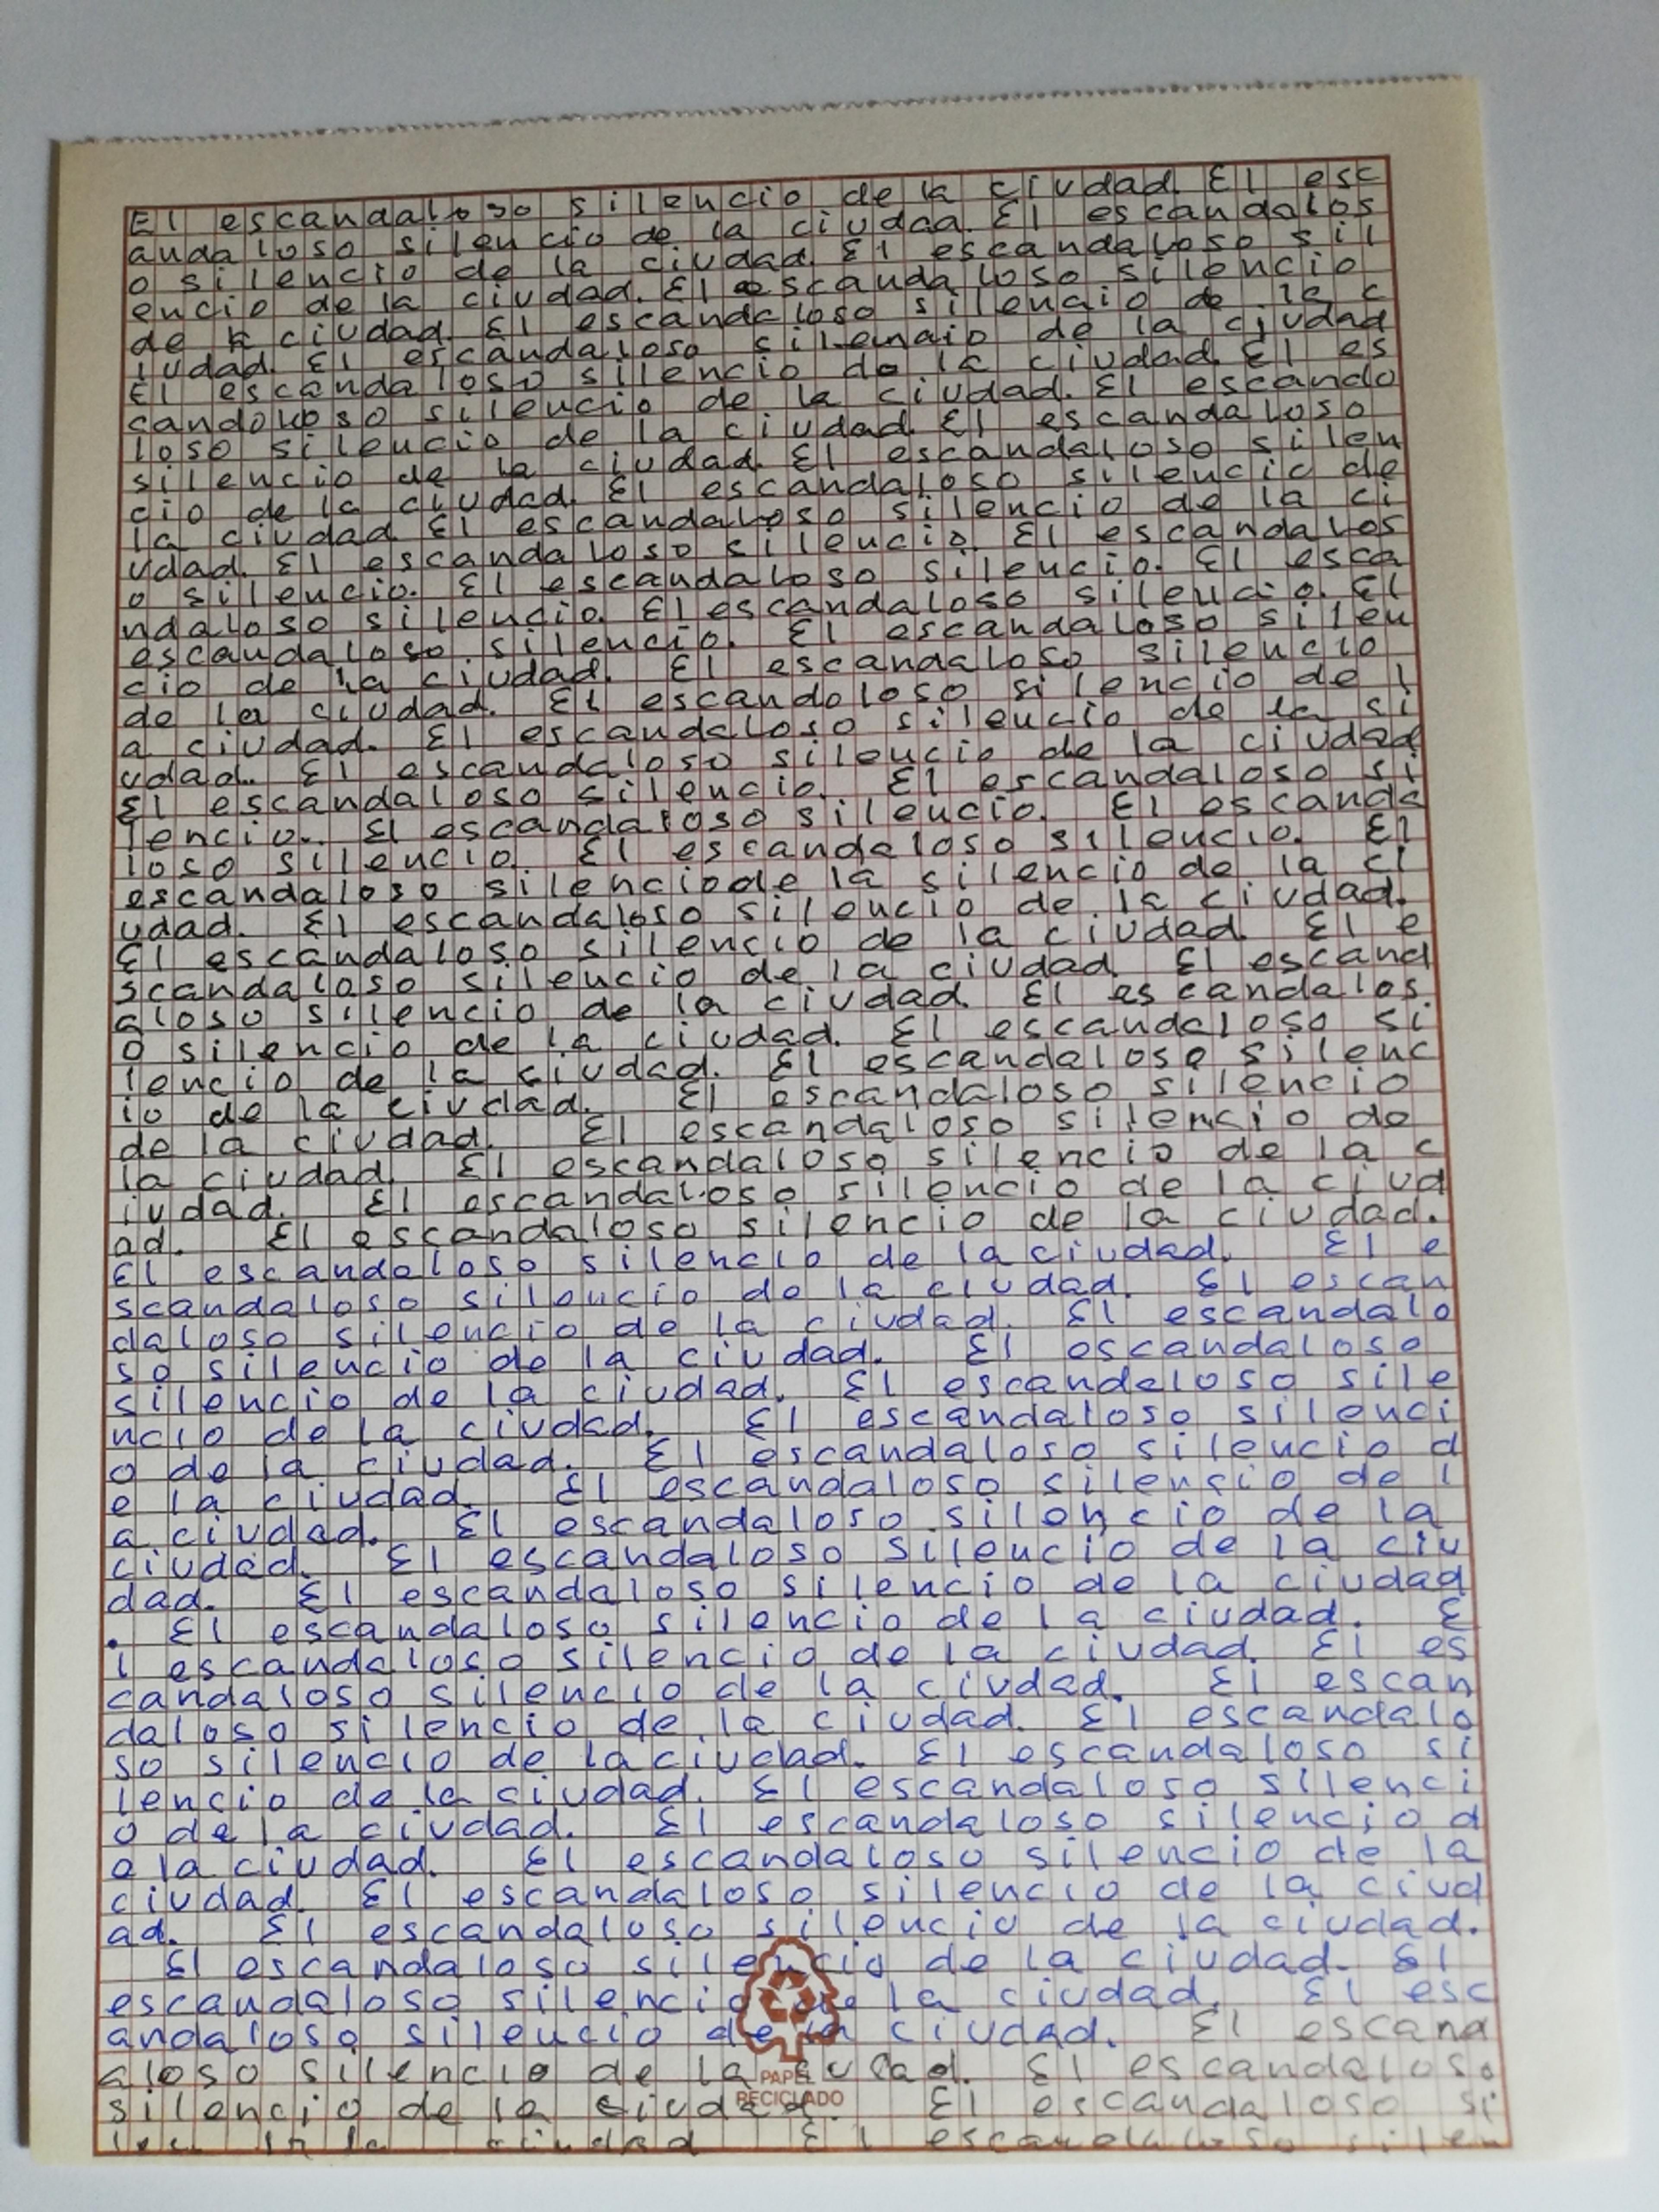 El escandaloso silencio de la ciudad El esc
andaloso silencio de la ciudad. El escandalos
o silencio de la ciudad El escandaloso sil
encio de la ciudad. El escandaloso silencio
de la ciudad. El escandaloso silencio de la c
iudad. El escandaloso silencio de la ciudad
El escandaloso silencio de la ciudad. El es
candoloso silencio de la ciudad. El escando
loso silencio de la ciudad. El escandaloso
silencio de la ciudad. El escandaloso silen
cio de la ciudad. El escandaloso silencio de
la ciudad El escandaloso silencio de la ci
udad. El escandaloso silencio. El escandalos
o silencio. El escandaloso silencio. El esca
ndaloso silencio. El escandaloso silencio. El
escandaloso silencio. El escandaloso silen
cio de la ciudad. El escandaloso silencio
de la ciudad. El escandoloso silencio de l
a ciudad. El escandaloso silencio de la si
udad. El escandaloso silencio de la ciudad
El escandaloso silencio. El escandaloso si
lencio. El escandaloso silencio. El escanda
loso silencio. El escandaloso silencio. El
escandaloso silenciode la silencio de la ci
udad. El escandaloso silencio de la ciudad.
El escandaloso silencio de la ciudad. El e
scandaloso silencio de la ciudad. El escand
aloso silencio de la ciudad. El escandalos
o silencio de la ciudad. El escandaloso si
lencio de la ciudad. El escandaloso silenc
io de la ciudad. El escandaloso silencio
de la ciudad. El escandaloso silencio de
la ciudad. El escandaloso silencio de la c
iudad. El escandaloso silencio de la ciud
ad. El escandaloso silencio de la ciudad.
El escandaloso silencio de la ciudad. El e
scandaloso silencio de la ciudad. El escan
daloso silencio de la ciudad. El escandalo
so silencio de la ciudad. El escandaloso
silencio de la ciudad. El escandaloso sile
ncio de la ciudad. El escandaloso silenci
o de la ciudad. El escandaloso silencio d
e la ciudad. El escandaloso silencio de l
a ciudad. El escandaloso silencio de la
ciudad. El escandaloso silencio de la ciu
dad. El escandaloso silencio de la ciudad
. El escandaloso silencio de la ciudad. E
l escandaloso silencio de la ciudad. El es
candaloso silencio de la ciudad. El escan
daloso silencio de la ciudad. El escandalo
so silencio de la ciudad. El escandaloso si
lencio de la ciudad. El escandaloso silenci
o de la ciudad. El escandaloso silencio d
e la ciudad. El escandaloso silencio de la
ciudad. El escandaloso silencio de la ciud
ad. El escandaloso silencio de la ciudad.
El escandaloso silencio de la ciudad. El
escandaloso silencio de la ciudad. El esc
andaloso silencio de la ciudad. El escand
aloso silencio de la ciudad. El escandaloso
silencio de la ciudad. El escandaloso si
la ciudad El escandaloso silen
PAPEL
RECICLADO